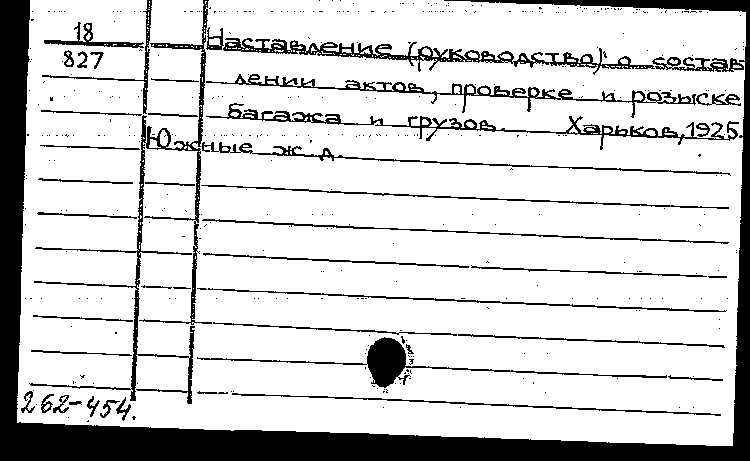 18
827
Наставление (руководство) о состав
лении актов, проверке и розыске
багажа и грузов. Харьков, 1925.
Южные ж. д.
262-454.